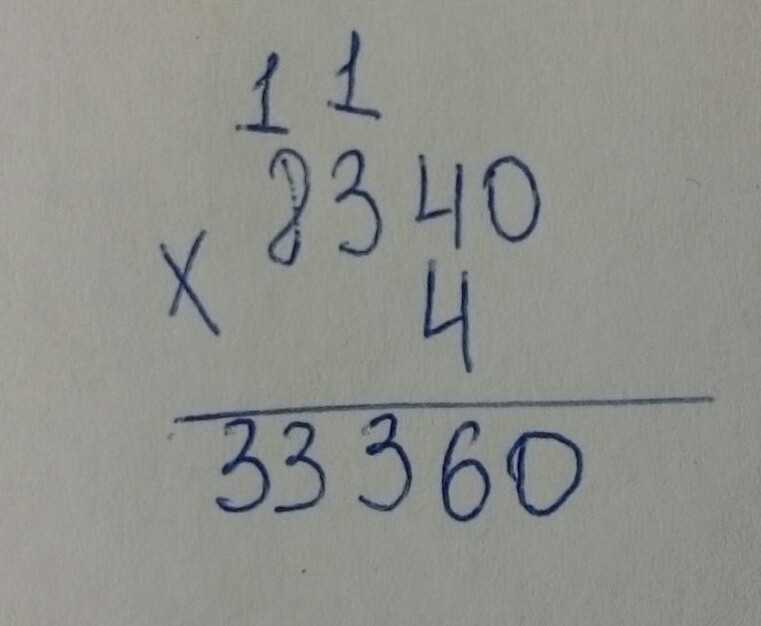 1 1
8340
× 4
33360